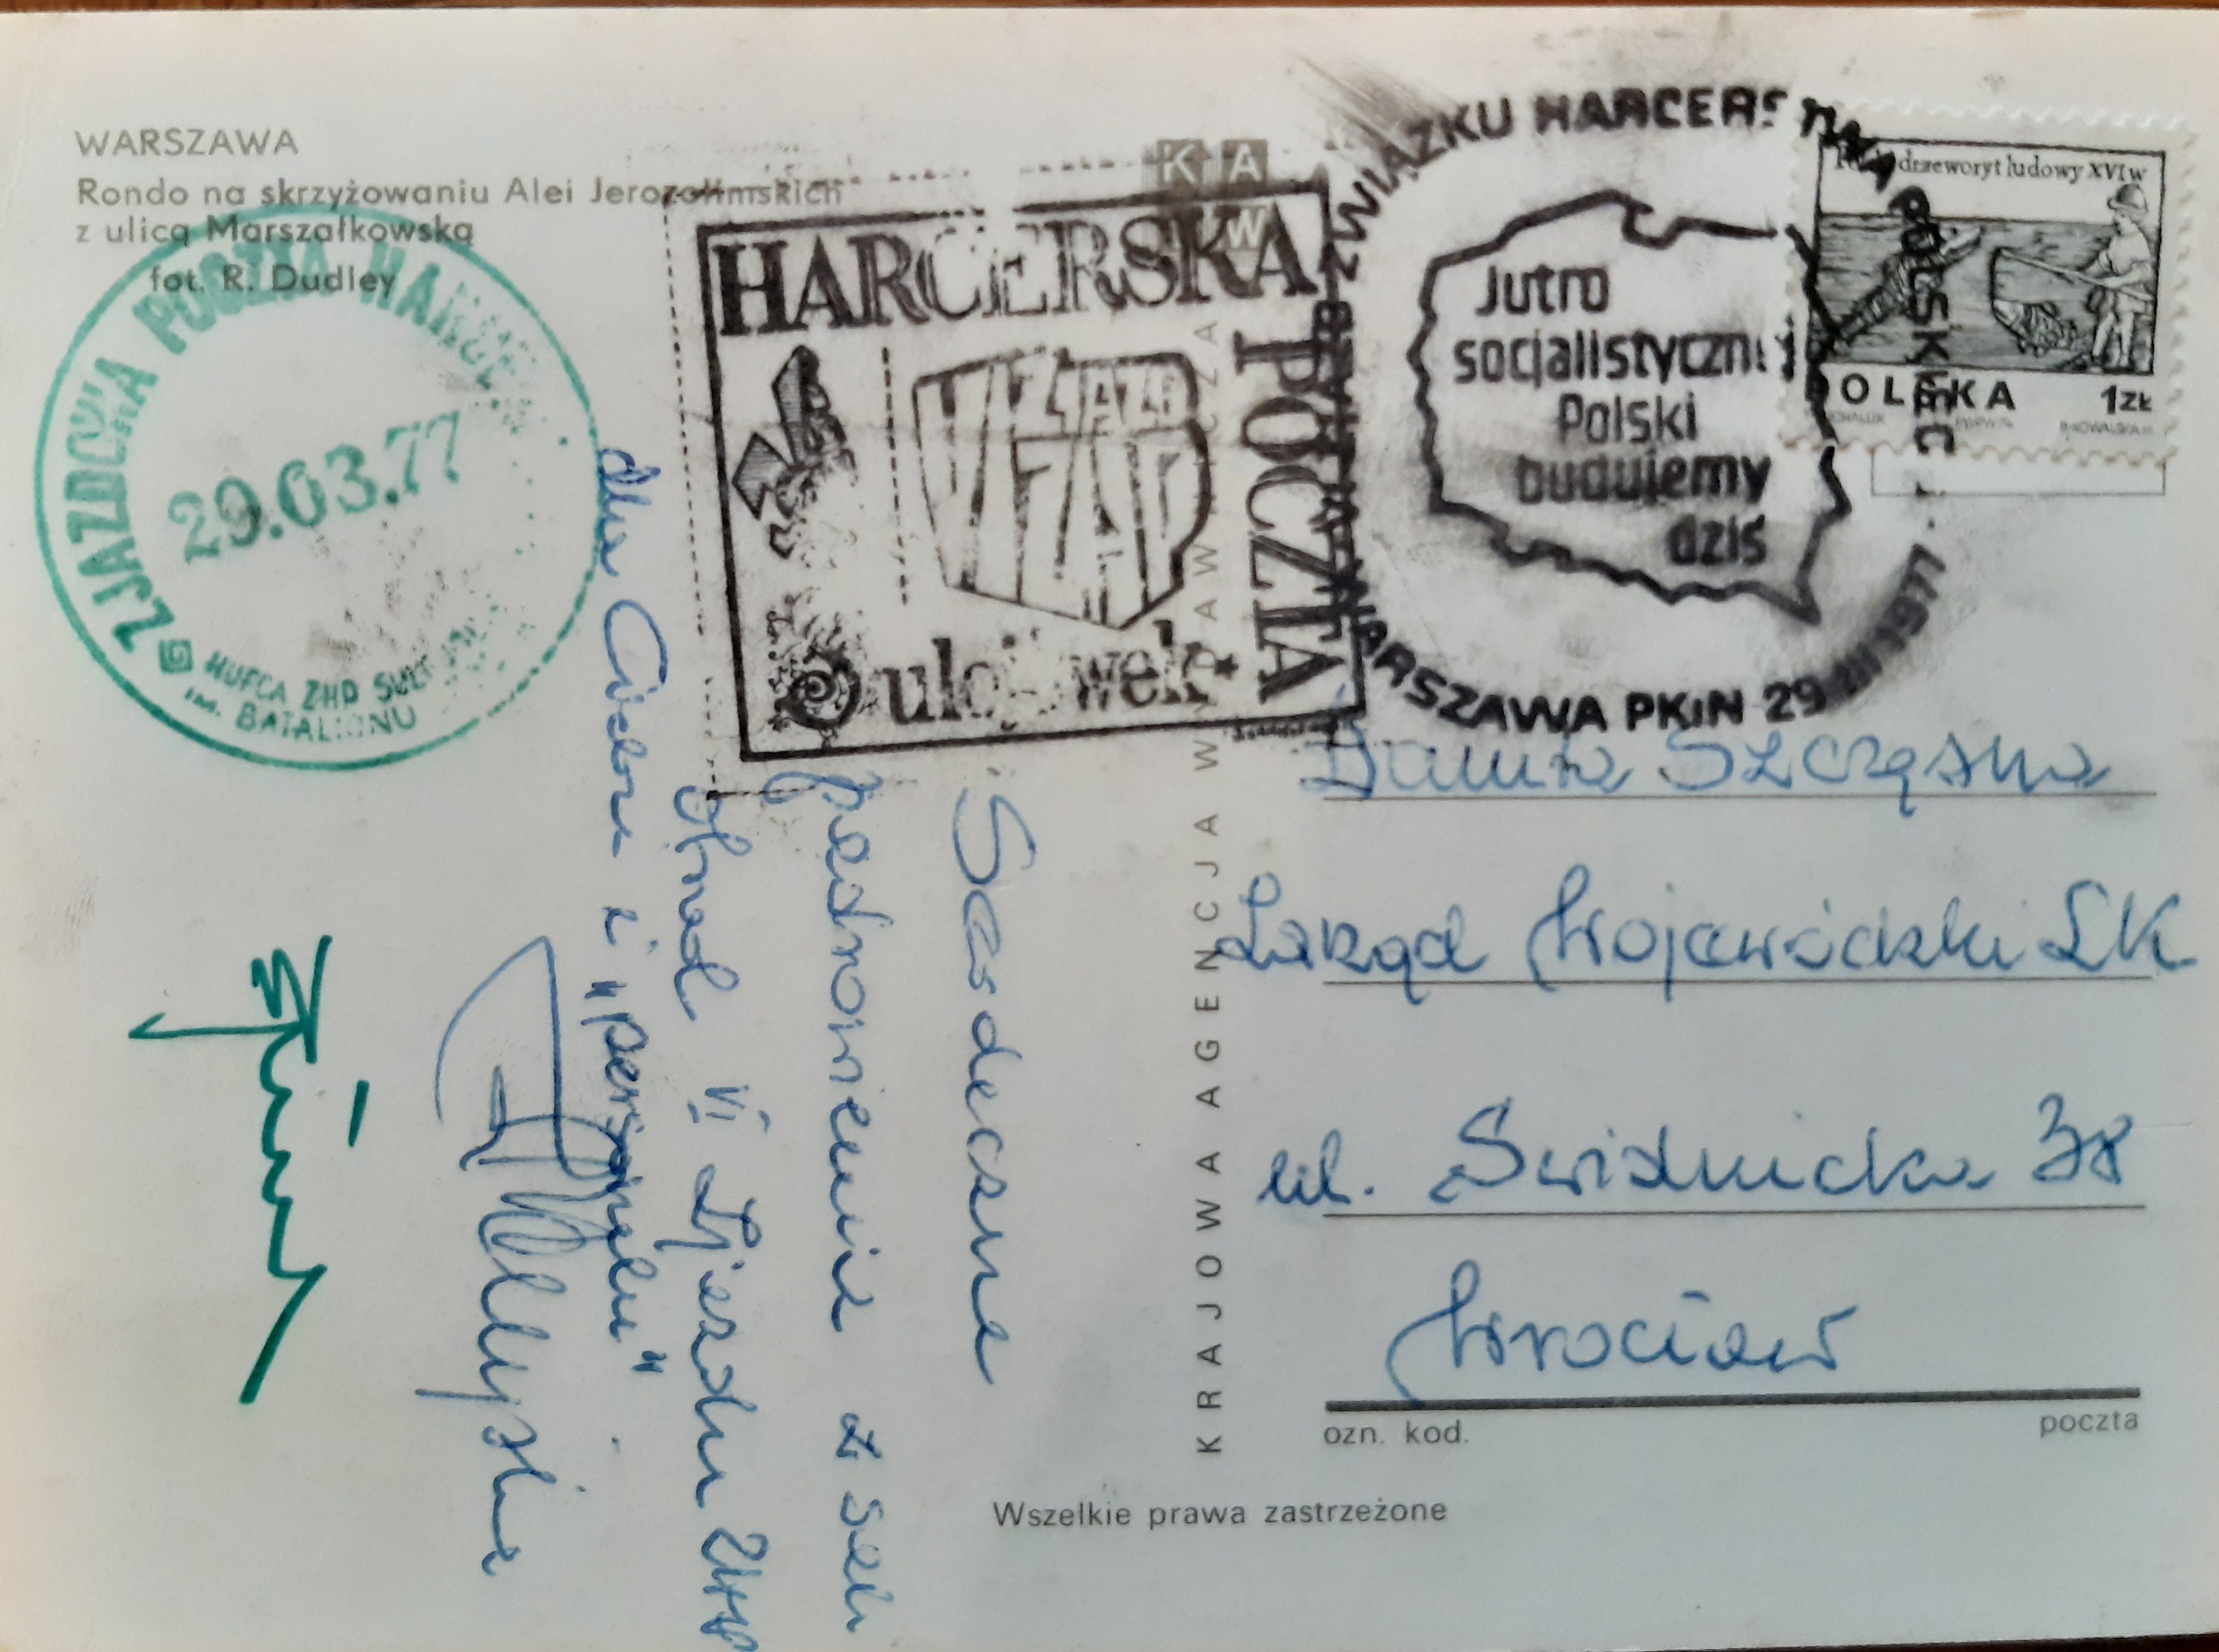 WARSZAWA
Rondo na skrzyżowaniu Alei Jerozolimskich
z ulicą Marszałkowską
fot. R. Dudley
ZJAZDOWA POCZTA
29.03.77
HUFCA ZHP
IM. BATALIONU
HARCERSKA
POCZTA
VI ZJAZD
ZWIĄZKU HARCERSTWA POLSKIEGO
WARSZAWA PKiN 29 III 1977
Jutro
socjalistycznej
Polski
budujemy
dziś
drzeworyt ludowy XVI w
POLSKA 1 ZŁ
K A W
Serdeczne
pozdrowienia z sali
obrad VI Zjazdu ZHP
dla Ciebie i "personelu"
KRAJOWA AGENCJA WYDAWNICZA
Danuta Szczęsna
Zarząd Wojewódzki LK
ul. Świdnicka 38
Wrocław
ozn. kod. poczta
Wszelkie prawa zastrzeżone